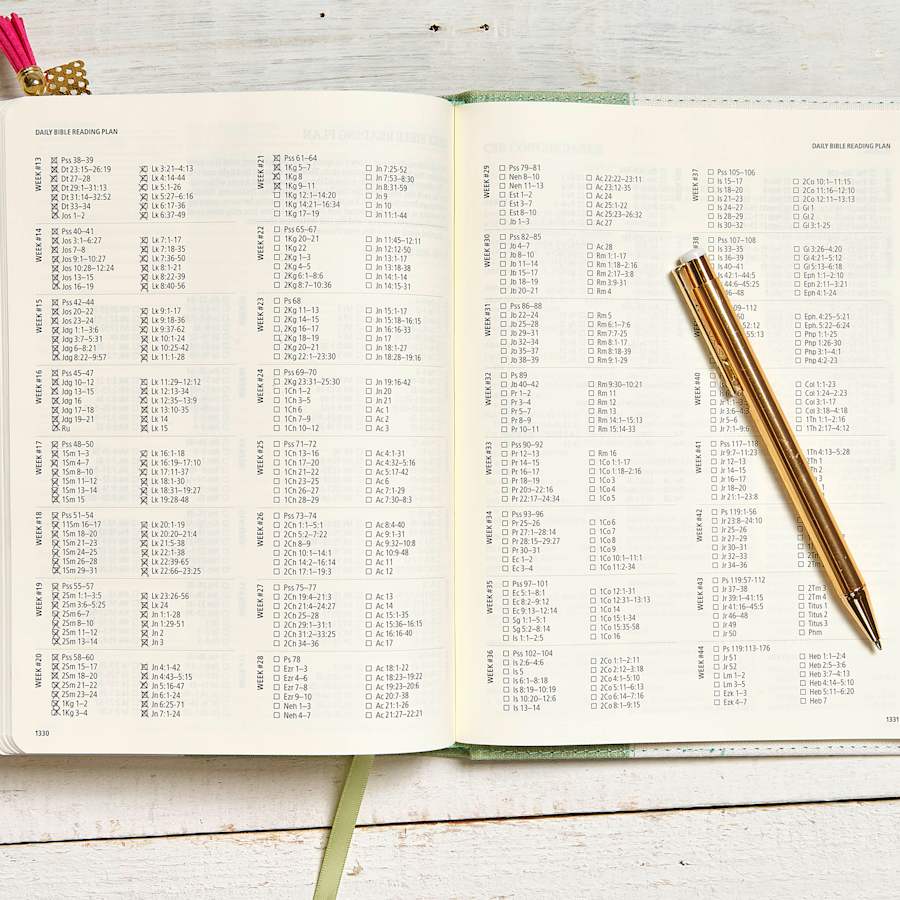 DAILY BIBLE READING PLAN
WEEK #13
Pss 38–39
Dt 23:15–26:19
Dt 27–28
Dt 29:1–31:13
Dt 31:14–32:52
Dt 33–34
Jos 1–2
Lk 3:21–4:13
Lk 4:14–44
Lk 5:1–26
Lk 5:27–6:16
Lk 6:17–36
Lk 6:37–49
WEEK #14
Pss 40–41
Jos 3:1–6:27
Jos 7–8
Jos 9:1–10:27
Jos 10:28–12:24
Jos 13–15
Jos 16–19
Lk 7:1–17
Lk 7:18–35
Lk 7:36–50
Lk 8:1–21
Lk 8:22–39
Lk 8:40–56
WEEK #15
Pss 42–44
Jos 20–22
Jos 23–24
Jdg 1:1–3:6
Jdg 3:7–5:31
Jdg 6–8:21
Jdg 8:22–9:57
Lk 9:1–17
Lk 9:18–36
Lk 9:37–62
Lk 10:1–24
Lk 10:25–42
Lk 11:1–28
WEEK #16
Pss 45–47
Jdg 10–12
Jdg 13–15
Jdg 16
Jdg 17–18
Jdg 19–21
Ru
Lk 11:29–12:12
Lk 12:13–34
Lk 12:35–13:9
Lk 13:10–35
Lk 14
Lk 15
WEEK #17
Pss 48–50
1Sm 1–3
1Sm 4–7
1Sm 8–10
1Sm 11–12
1Sm 13–14
1Sm 15
Lk 16:1–18
Lk 16:19–17:10
Lk 17:11–37
Lk 18:1–30
Lk 18:31–19:27
Lk 19:28–48
WEEK #18
Pss 51–54
11Sm 16–17
1Sm 18–20
1Sm 21–23
1Sm 24–25
1Sm 26–28
1Sm 29–31
Lk 20:1–19
Lk 20:20–21:4
Lk 21:5–38
Lk 22:1–38
Lk 22:39–65
Lk 22:66–23:25
WEEK #19
Pss 55–57
2Sm 1:1–3:5
2Sm 3:6–5:25
2Sm 6–7
2Sm 8–10
2Sm 11–12
2Sm 13–14
Lk 23:26–56
Lk 24
Jn 1:1–28
Jn 1:29–51
Jn 2
Jn 3
WEEK #20
Pss 58–60
2Sm 15–17
2Sm 18–20
2Sm 21–22
2Sm 23–24
1Kg 1–2
1Kg 3–4
Jn 4:1–42
Jn 4:43–5:15
Jn 5:16–47
Jn 6:1–24
Jn 6:25–71
Jn 7:1–24
WEEK #21
Pss 61–64
1Kg 5–7
1Kg 8
1Kg 9–11
1Kg 12:1–14:20
1Kg 14:21–16:34
1Kg 17–19
Jn 7:25–52
Jn 7:53–8:30
Jn 8:31–59
Jn 9
Jn 10
Jn 11:1–44
WEEK #22
Pss 65–67
1Kg 20–21
1Kg 22
2Kg 1–3
2Kg 4–5
2Kg 6:1–8:6
2Kg 8:7–10:36
Jn 11:45–12:11
Jn 12:12–50
Jn 13:1–17
Jn 13:18–38
Jn 14:1–14
Jn 14:15–31
WEEK #23
Ps 68
2Kg 11–13
2Kg 14–15
2Kg 16–17
2Kg 18–19
2Kg 20–21
2Kg 22:1–23:30
Jn 15:1–17
Jn 15:18–16:15
Jn 16:16–33
Jn 17
Jn 18:1–27
Jn 18:28–19:16
WEEK #24
Pss 69–70
2Kg 23:31–25:30
1Ch 1–2
1Ch 3–5
1Ch 6
1Ch 7–9
1Ch 10–12
Jn 19:16–42
Jn 20
Jn 21
Ac 1
Ac 2
Ac 3
WEEK #25
Pss 71–72
1Ch 13–16
1Ch 17–20
1Ch 21–22
1Ch 23–25
1Ch 26–27
1Ch 28–29
Ac 4:1–31
Ac 4:32–5:16
Ac 5:17–42
Ac 6
Ac 7:1–29
Ac 7:30–8:3
WEEK #26
Pss 73–74
2Ch 1:1–5:1
2Ch 5:2–7:22
2Ch 8–9
2Ch 10:1–14:1
2Ch 14:2–16:14
2Ch 17:1–19:3
Ac 8:4–40
Ac 9:1–31
Ac 9:32–10:8
Ac 10:9–48
Ac 11
Ac 12
WEEK #27
Pss 75–77
2Ch 19:4–21:3
2Ch 21:4–24:27
2Ch 25–28
2Ch 29:1–31:1
2Ch 31:2–33:25
2Ch 34–36
Ac 13
Ac 14
Ac 15:1–35
Ac 15:36–16:15
Ac 16:16–40
Ac 17
WEEK #28
Ps 78
Ezr 1–3
Ezr 4–6
Ezr 7–8
Ezr 9–10
Neh 1–3
Neh 4–7
Ac 18:1–22
Ac 18:23–19:22
Ac 19:23–20:6
Ac 20:7–38
Ac 21:1–26
Ac 21:27–22:21
1330
DAILY BIBLE READING PLAN
WEEK #29
Pss 79–81
Neh 8–10
Neh 11–13
Est 1–2
Est 3–7
Est 8–10
Jb 1–3
Ac 22:22–23:11
Ac 23:12–35
Ac 24
Ac 25:1–22
Ac 25:23–26:32
Ac 27
WEEK #30
Pss 82–85
Jb 4–7
Jb 8–10
Jb 11–14
Jb 15–17
Jb 18–19
Jb 20–21
Ac 28
Rm 1:1–17
Rm 1:18–2:16
Rm 2:17–3:8
Rm 3:9–31
Rm 4
WEEK #31
Pss 86–88
Jb 22–24
Jb 25–28
Jb 29–31
Jb 32–34
Jb 35–37
Jb 38–39
Rm 5
Rm 6:1–7:6
Rm 7:7–25
Rm 8:1–17
Rm 8:18–39
Rm 9:1–29
WEEK #32
Ps 89
Jb 40–42
Pr 1–2
Pr 3–4
Pr 5–7
Pr 8–9
Pr 10–11
Rm 9:30–10:21
Rm 11
Rm 12
Rm 13
Rm 14:1–15:13
Rm 15:14–33
WEEK #33
Pss 90–92
Pr 12–13
Pr 14–15
Pr 16–17
Pr 18–19
Pr 20–22:16
Pr 22:17–24:34
Rm 16
1Co 1:1–17
1Co 1:18–2:16
1Co 3
1Co 4
1Co 5
WEEK #34
Pss 93–96
Pr 25–26
Pr 27:1–28:14
Pr 28:15–29:27
Pr 30–31
Ec 1–2
Ec 3–4
1Co 6
1Co 7
1Co 8
1Co 9
1Co 10:1–11:1
1Co 11:2–34
WEEK #35
Pss 97–101
Ec 5:1–8:1
Ec 8:2–9:12
Ec 9:13–12:14
Sg 1:1–5:1
Sg 5:2–8:14
Is 1:1–2:5
1Co 12:1–31
1Co 12:31–13:13
1Co 14
1Co 15:1–34
1Co 15:35–58
1Co 16
WEEK #36
Pss 102–104
Is 2:6–4:6
Is 5
Is 6:1–8:18
Is 8:19–10:19
Is 10:20–12:6
Is 13–14
2Co 1:1–2:11
2Co 2:12–3:18
2Co 4:1–5:10
2Co 5:11–6:13
2Co 6:14–7:16
2Co 8:1–9:15
WEEK #37
Pss 105–106
Is 15–17
Is 18–20
Is 21–23
Is 24–27
Is 28–29
Is 30–32
2Co 10:1–11:15
2Co 11:16–12:10
2Co 12:11–13:13
Gl 1
Gl 2
Gl 3:1–25
#38
Pss 107–108
Is 33–35
Is 36–39
Is 40–41
42:1–44:5
44:6–45:25
46–48
Gl 3:26–4:20
Gl 4:21–5:12
Gl 5:13–6:18
Eph 1:1–2:10
Eph 2:11–3:21
Eph 4:1–24
09–112
50
52:12
55:13
Eph. 4:25–5:21
Eph. 5:22–6:24
Php 1:1–25
Php 1:26–30
Php 3:1–4:1
Php 4:2–23
WEEK #40
Jr 1:1–3:
Jr 3:6–4:3
Jr 5–6
Jr 7:1–9:6
Col 1:1–23
Col 1:24–2:23
Col 3:1–17
Col 3:18–4:18
1Th 1:1–2:16
1Th 2:17–4:12
WEEK #41
Pss 117–118
Jr 9:7–11:23
Jr 12–13
Jr 14–15
Jr 16–17
Jr 18–20
Jr 21:1–23:8
1Th 4:13–5:28
2Th 1
2Th 2
WEEK #42
Ps 119:1–56
Jr 23:8–24:10
Jr 25–26
Jr 27–29
Jr 30–31
Jr 32–33
Jr 34–36
WEEK #43
Ps 119:57–112
Jr 37–38
Jr 39:1–41:15
Jr 41:16–45:5
Jr 46–48
Jr 49
Jr 50
2Tm 3
2Tm 4
Titus 1
Titus 2
Titus 3
Phm
WEEK #44
Ps 119:113–176
Jr 51
Jr 52
Lm 1–2
Lm 3–5
Ezk 1–3
Ezk 4–7
Heb 1:1–2:4
Heb 2:5–3:6
Heb 3:7–4:13
Heb 4:14–5:10
Heb 5:11–6:20
Heb 7
1331